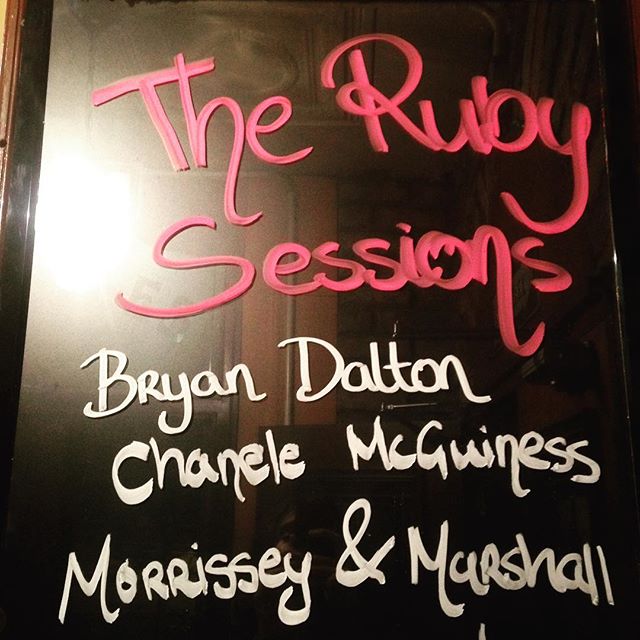 The Ruby
Sessions
Bryan Dalton
Chanele McGuiness
Morrissey & Marshall